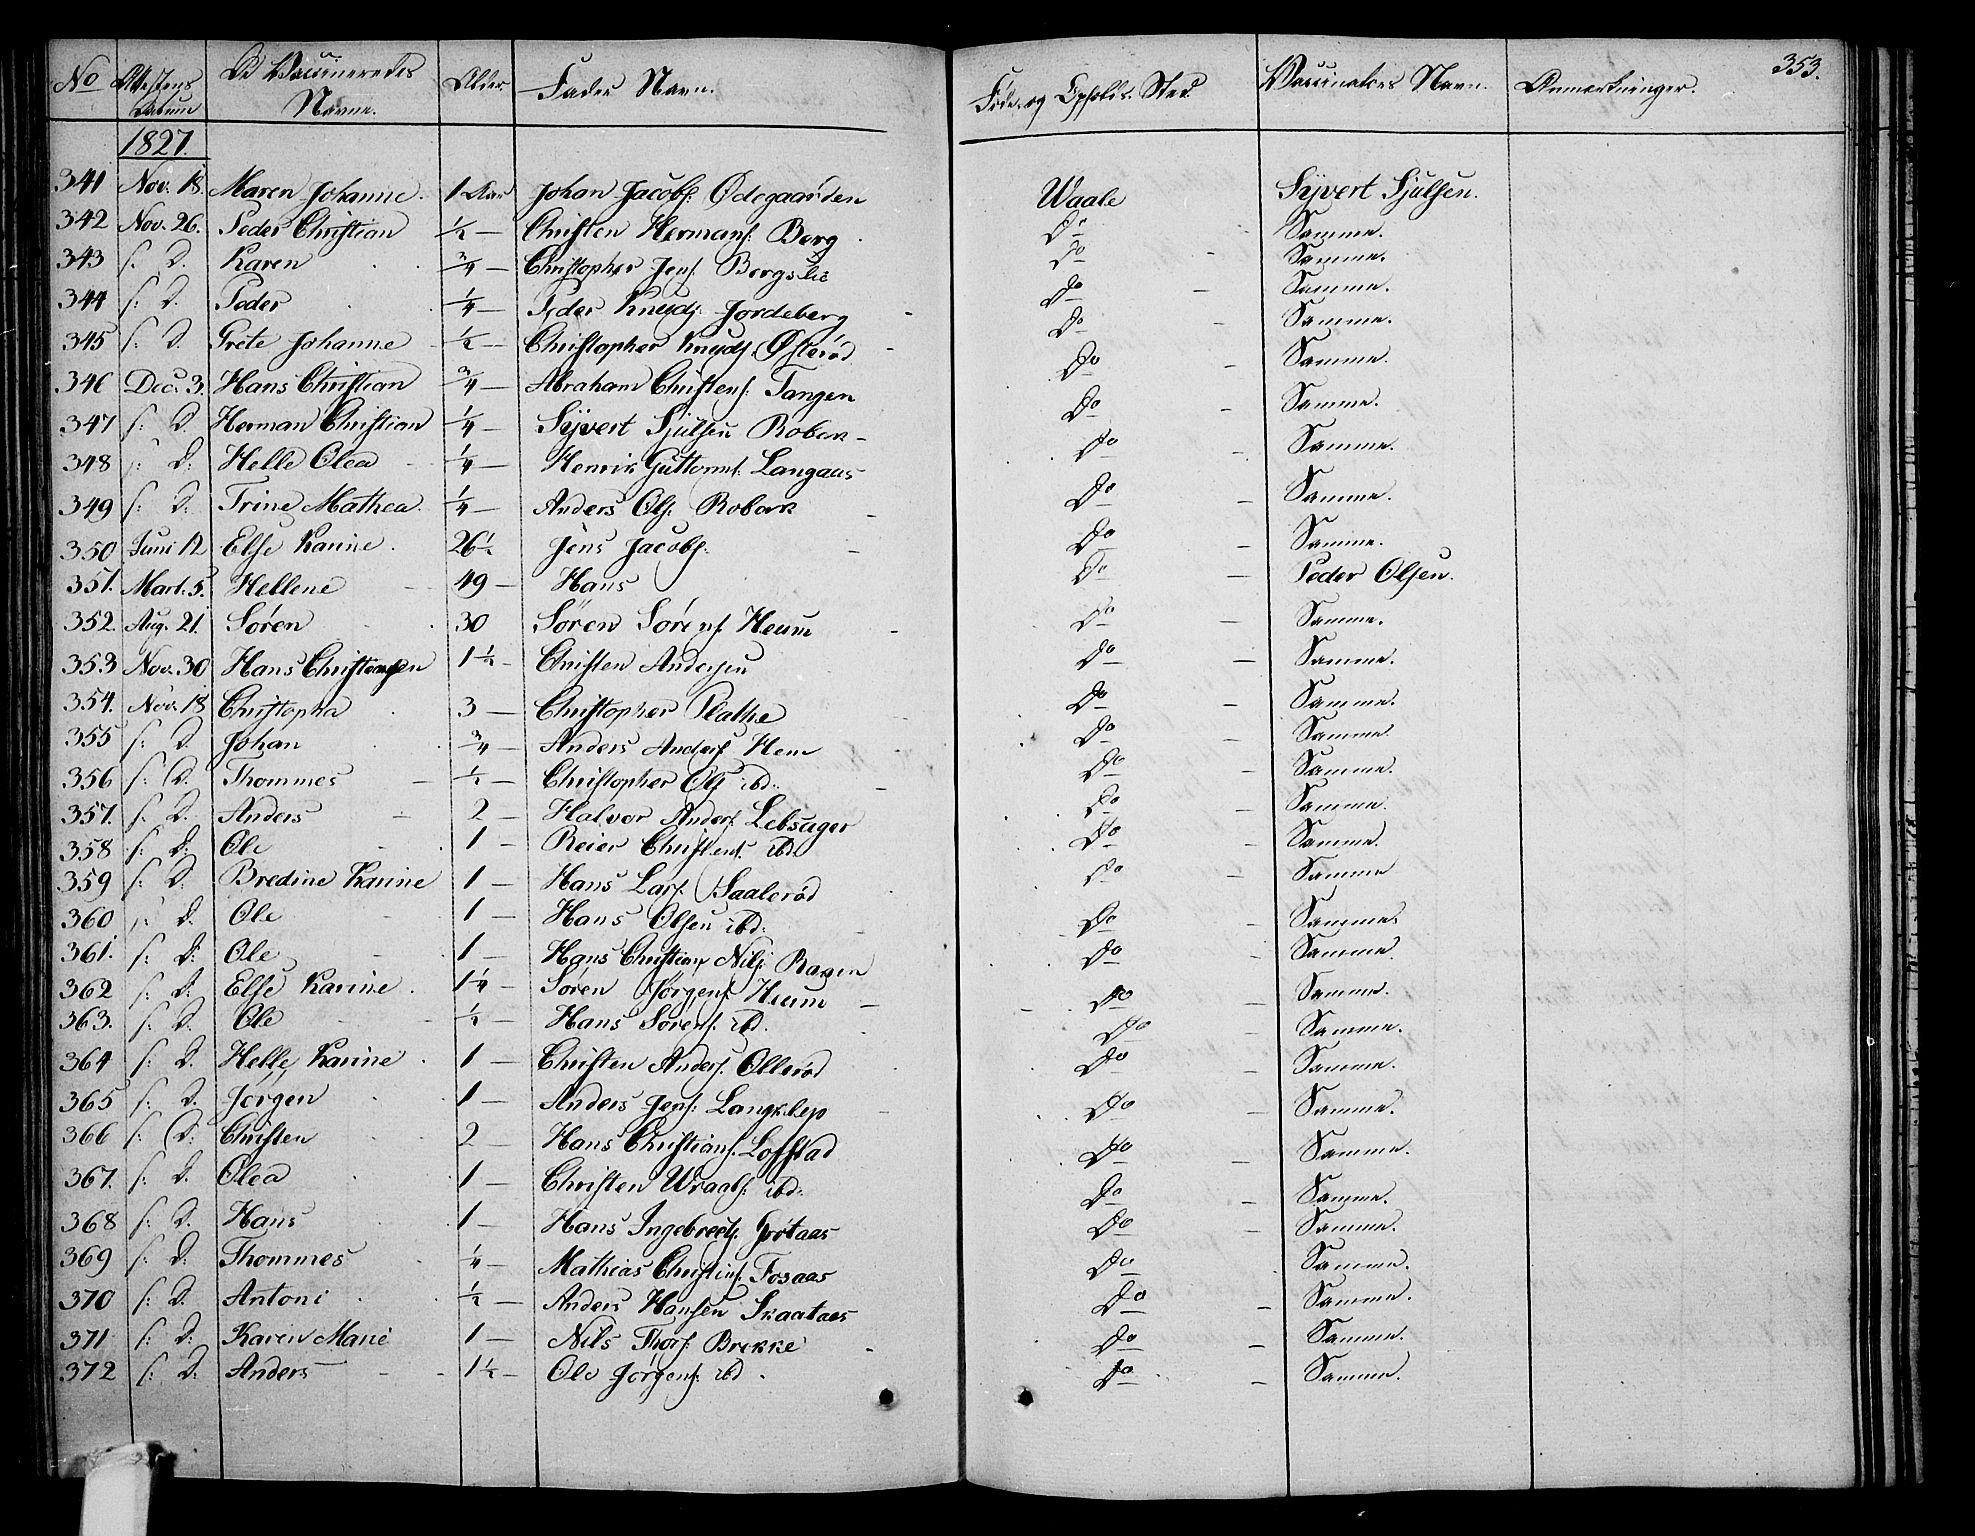 353.
No Attestens Datum De Vaccineredes Navne. Alder Faders Navn. Føde og Opholds Sted Vaccinators Navn. Anmærkninger.
1827.
341 Nov. 18. Maren Johanne. 1 Aar Johan Jacobs: Ødegaarden Waale Syvert Sjulsen.
342 Nov. 26. Peder Christian ½ — Christen Hermans: Berg Do Samme.
343 s: D. Karen ¾ — Christopher Jens: Bergslie Do Samme.
344 s: D. Peder ¼ — Peder Knuds: Jordeberg Do Samme.
345 s: D. Grete Johanne ½ — Christopher Knuds: Østerød Do Samme.
346 Dec. 3. Hans Christian ¾ — Abraham Christens: Tangen Do Samme.
347 s: D. Herman Christian ¼ — Syvert Sjulsen Robak Do Samme.
348 s: D: Helle Olea ¼ — Henrik Guttorms: Langaas Do Samme.
349 s: D: Trine Mathea. ¼ — Anders Ols: Robak Do Samme.
350 Juni 12 Else Karine. 26½ Jens Jacobs: Do Samme.
351. Mart. 5. Hellene 49 — Hans Do Peder Olsen.
352. Aug. 21. Søren 30 Søren Sørens: Heum Do Samme.
353 Nov. 30 Hans 1½ — Christen Andersen Do Samme.
354. Nov. 18 Christopha 3 — Christopher Plathe Do Samme.
355 s: D. Johan ¾ — Anders Anders: Hem Do Samme.
356 s: D. Thommes ½ — Christopher Ols: ibd: Do Samme.
357. s: D. Anders 2 — Halvor Anders: Lebsager Do Samme.
358 s: D: Ole 1 — Reier Christens: ibd: Do Samme.
359 s: D: Bredine Karine 1 — Hans Lars: Saalerød Do Samme
360 s: D. Ole 1 — Hans Olsen ibd: Do Samme.
361. s: D: Ole 1 — Hans Christian Nils: Do Samme.
362 s: D: Else Karine. 1¼ — Søren Jørgens: Heum Do Samme.
363. s: D. Ole ½ — Hans Sørens: ibd. Do Samme.
364 s: D. Helle Karine 1 — Christen Anders: Ollerød Do Samme.
365 s: D. Jørgen 1 — Anders Jens: Langslep Do Samme.
366 s: D: Christen 2 — Hans Christians: Lofstad Do Samme.
367. s: D. Olea 1 — Christen Wraals: ibd: Do Samme.
368 s: D. Hans 1 — Hans Ingebrets: Grøtaas Do Samme.
369 s: D. Thommes ¼ — Mathias Christens: Fosaas Do Samme.
370 s: D. Antoni ½ — Anders Hansen Skaataas Do Samme.
371 s: D: Karen Marie 1 — Nils Thors: Brekke Do Samme.
372 s: D: Anders 1½ — Ole Jørgens: ibd. Do Samme.